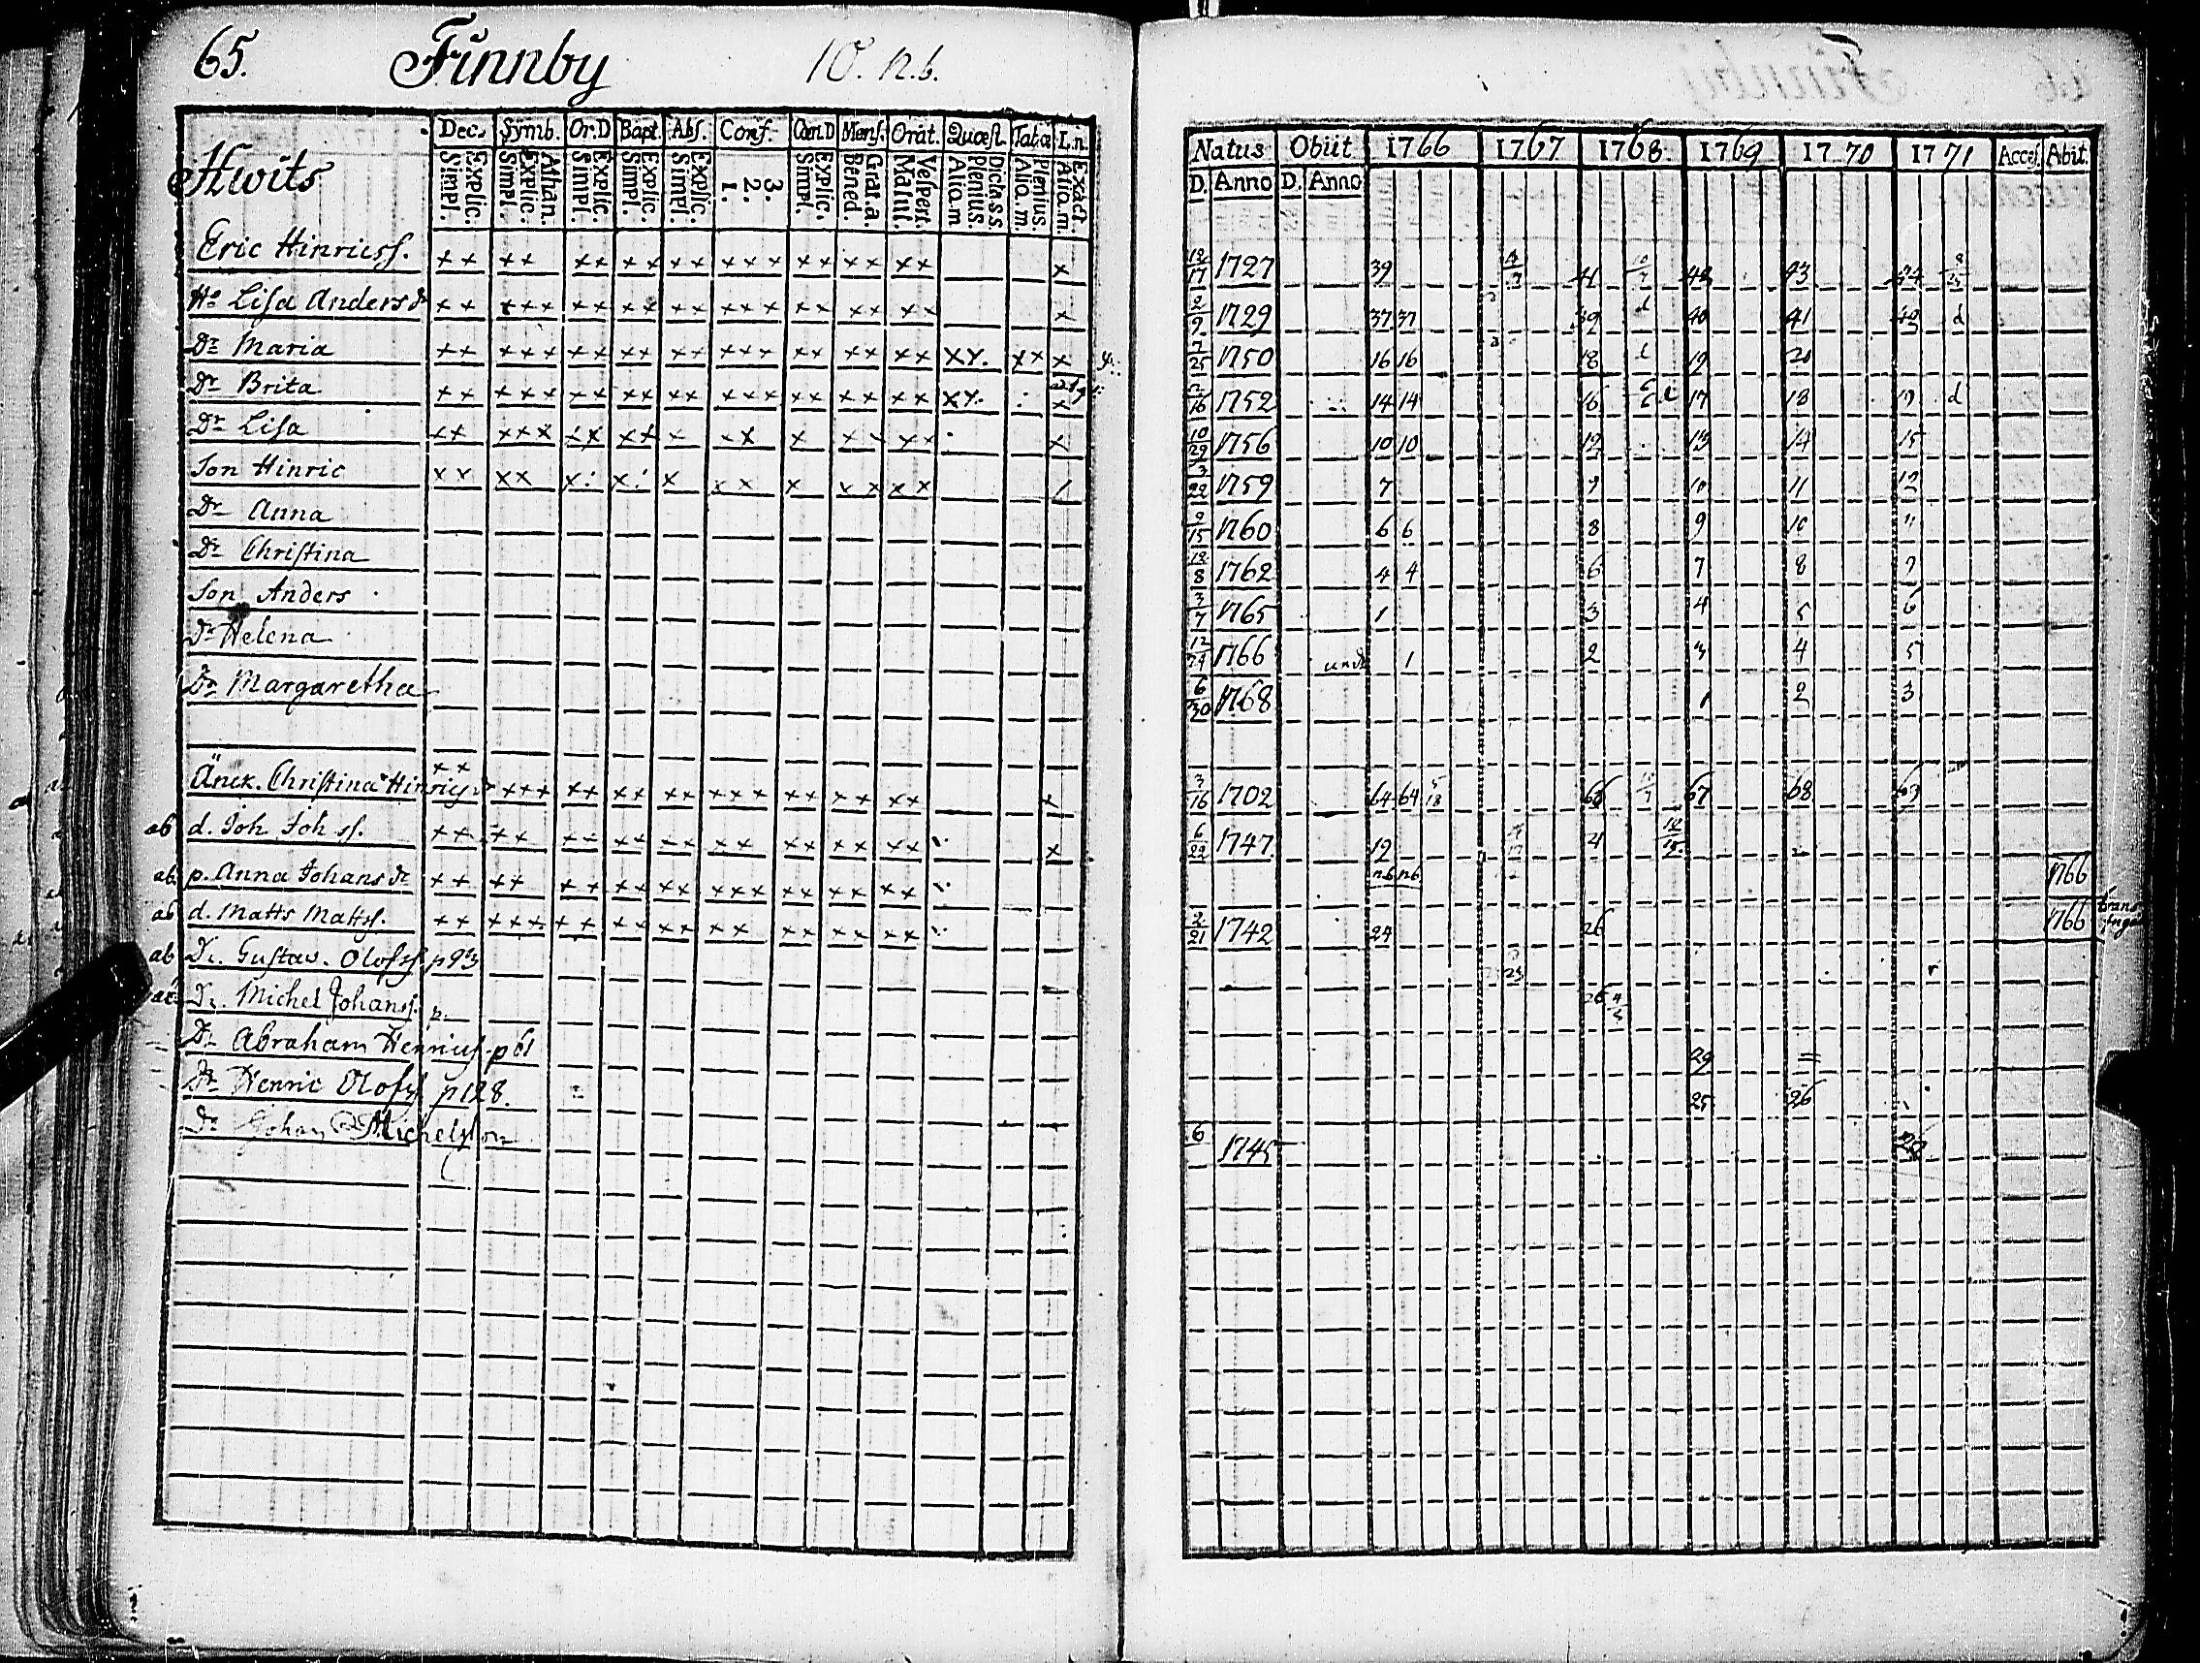 65. Finnby 10. n.b.
Dec. Symb. Or.D Bapt. Abs. Conf. Cœn.D Mens. Orat. Quæst. Tab.æ L.n.
Hwits
Explic. Simpl. Athan. Explic. Simpl. Explic. Simpl. Explic. Simpl. Explic. Simpl. 3. 2. 1. Explic. Simpl. Grat.a. Bened. Vespert. Matut. Dict.s.s. Plenius. Aliq.m Plenius. Aliq.m. Exact. Aliq.m.
Natus Obiit 1766 1767 1768 1769 1770 1771 Acces. Abit.
D. Anno D. Anno
Eric Hinricss. x x x x x x x x x x x x x x x x x x x x 12/17 1727 39 41 42 43 44
Ho Lisa Andersdr x x x x x x x x x x x x x x x x x x x x x 2/9 1729 37 37 39 d 40 41 42 d
Dr Maria x x x x x x x x x x x x x x x x x x x x xx. x x x 7/25 1750 16 16 18 19 20
Dr Brita x x x x x x x x x x x x x x x x x x x x xx. x 2/16 1752 14 14 16 17 18 19 d
Dr Lisa x x x x x x x x x x x x x x x x x x 10/29 1756 10 10 12 13 14 15
Son Hinric x x x x x x x x x x x x x x 3/22 1759 7 9 10 11 12
Dr Anna 9/15 1760 6 6 8 9 10 11
Dr Christina 12/8 1762 4 4 6 7 8 9
Son Anders 3/7 1765 1 3 4 5 6
Dr Helena 12/24 1766 1 2 3 4 5
Dr Margaretha 6/30 1768 1 2 3
Änck. Christina Hinricsdr x x x x x x x x x x x x x x x x x x x x x x 3/16 1702 64 64 5/18 66 67 68 69
ab d. Joh Johss. x x x x x x x x x x x x x x x x x x x 6/22 1747 19 4
ab. p. Anna Johansdr x x x x x x x x x x x x x x x x x x x n.b n.b 1766
ab d. Matts Mattss. x x x x x x x x x x x x x x x x x x x 2/21 1742 24 26 1766
ab Dr. Gustav. Olofss. p 93 23
Dr. Michel Johanss. p. 26 4/3
Dr Abraham Henricss. p 61 29 =
Dr Henric Olofss p 128. 25 26
Dr Johan Michelsson 6 1745 26